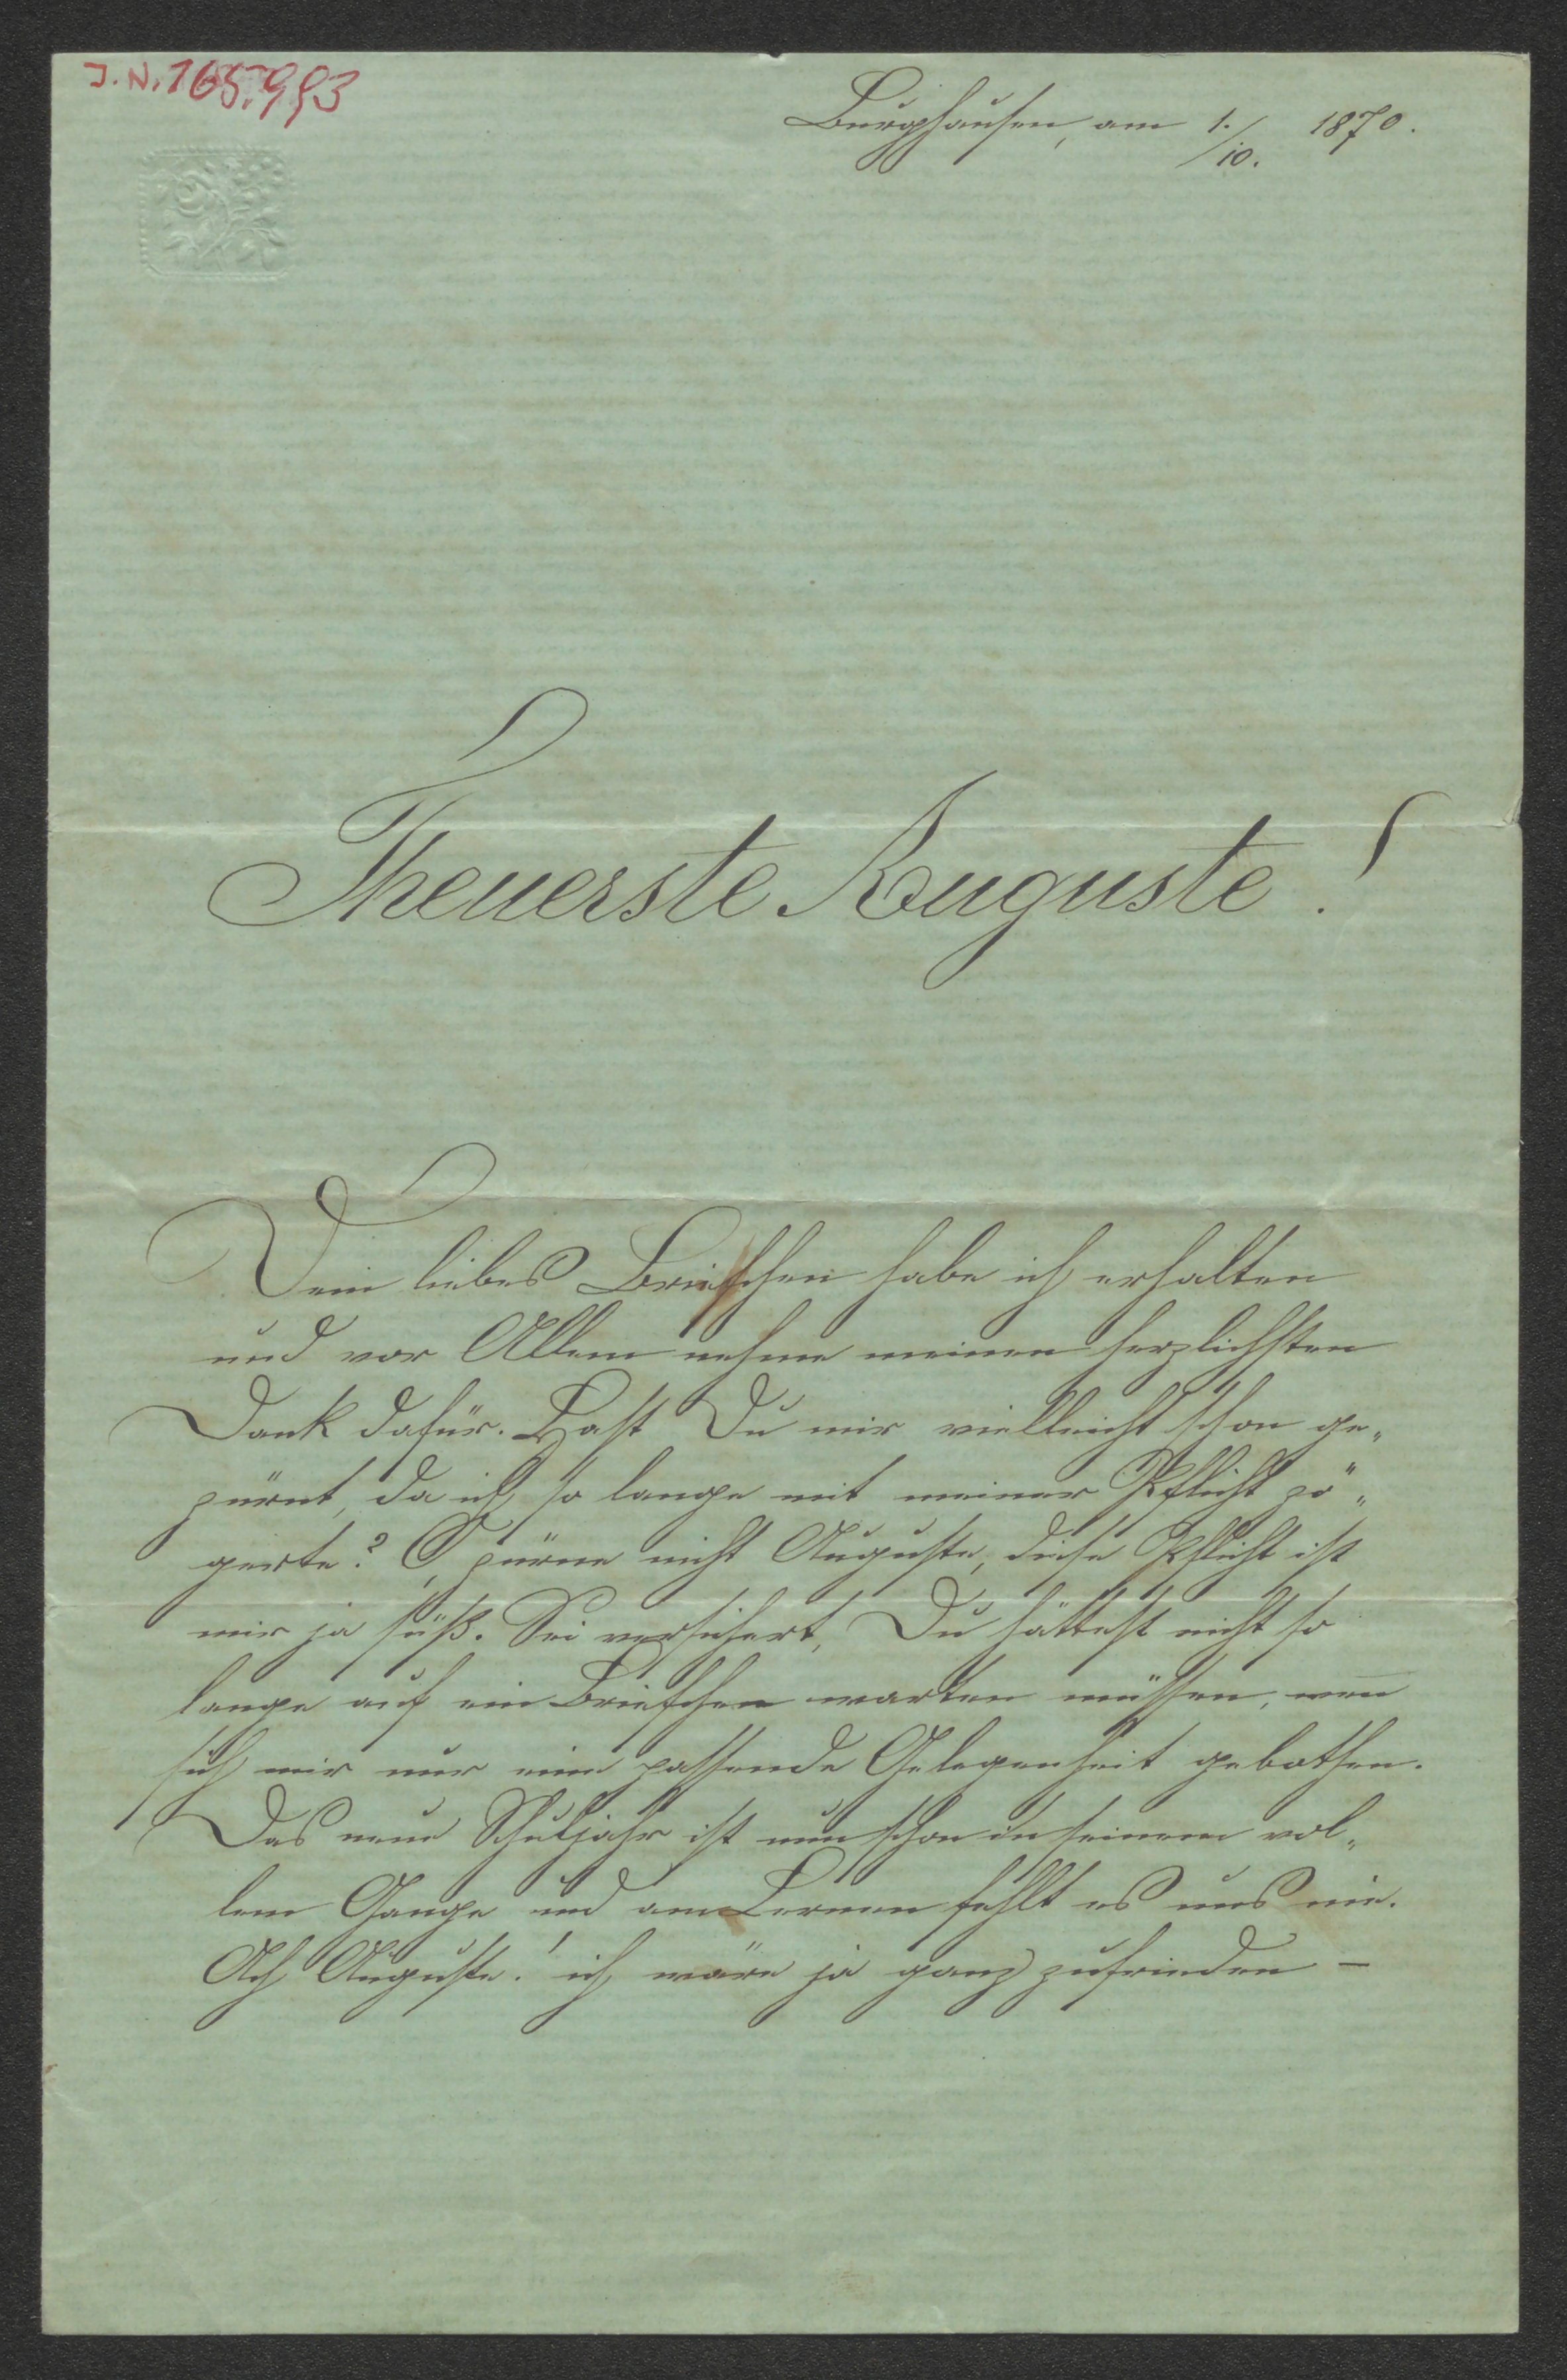 J.N. 165.993
Burghausen, am 1./10. 1870.
Theuerste Auguste!
Dein liebes Briefchen habe ich erhalten
und vor Allem nehme meinen herzlichsten
Dank dafür. Hast Du mir vielleicht schon ge„
zürnt, da ich so lange mit meiner Pflicht zö„
gerte? O, zürne nicht Auguste, diese Pflicht ist
mir ja süß. Sei versichert, Du hättest nicht so
lange auf ein Briefchen warten müssen, wen̅
sich mir nur eine passende Gelegenheit gebothen.
Das neue Schuljahr ist nun schon in seinem vol„
lem Gange und am Lernen fehlt es uns nie.
Ach Auguste! ich wäre ja ganz zufrieden –